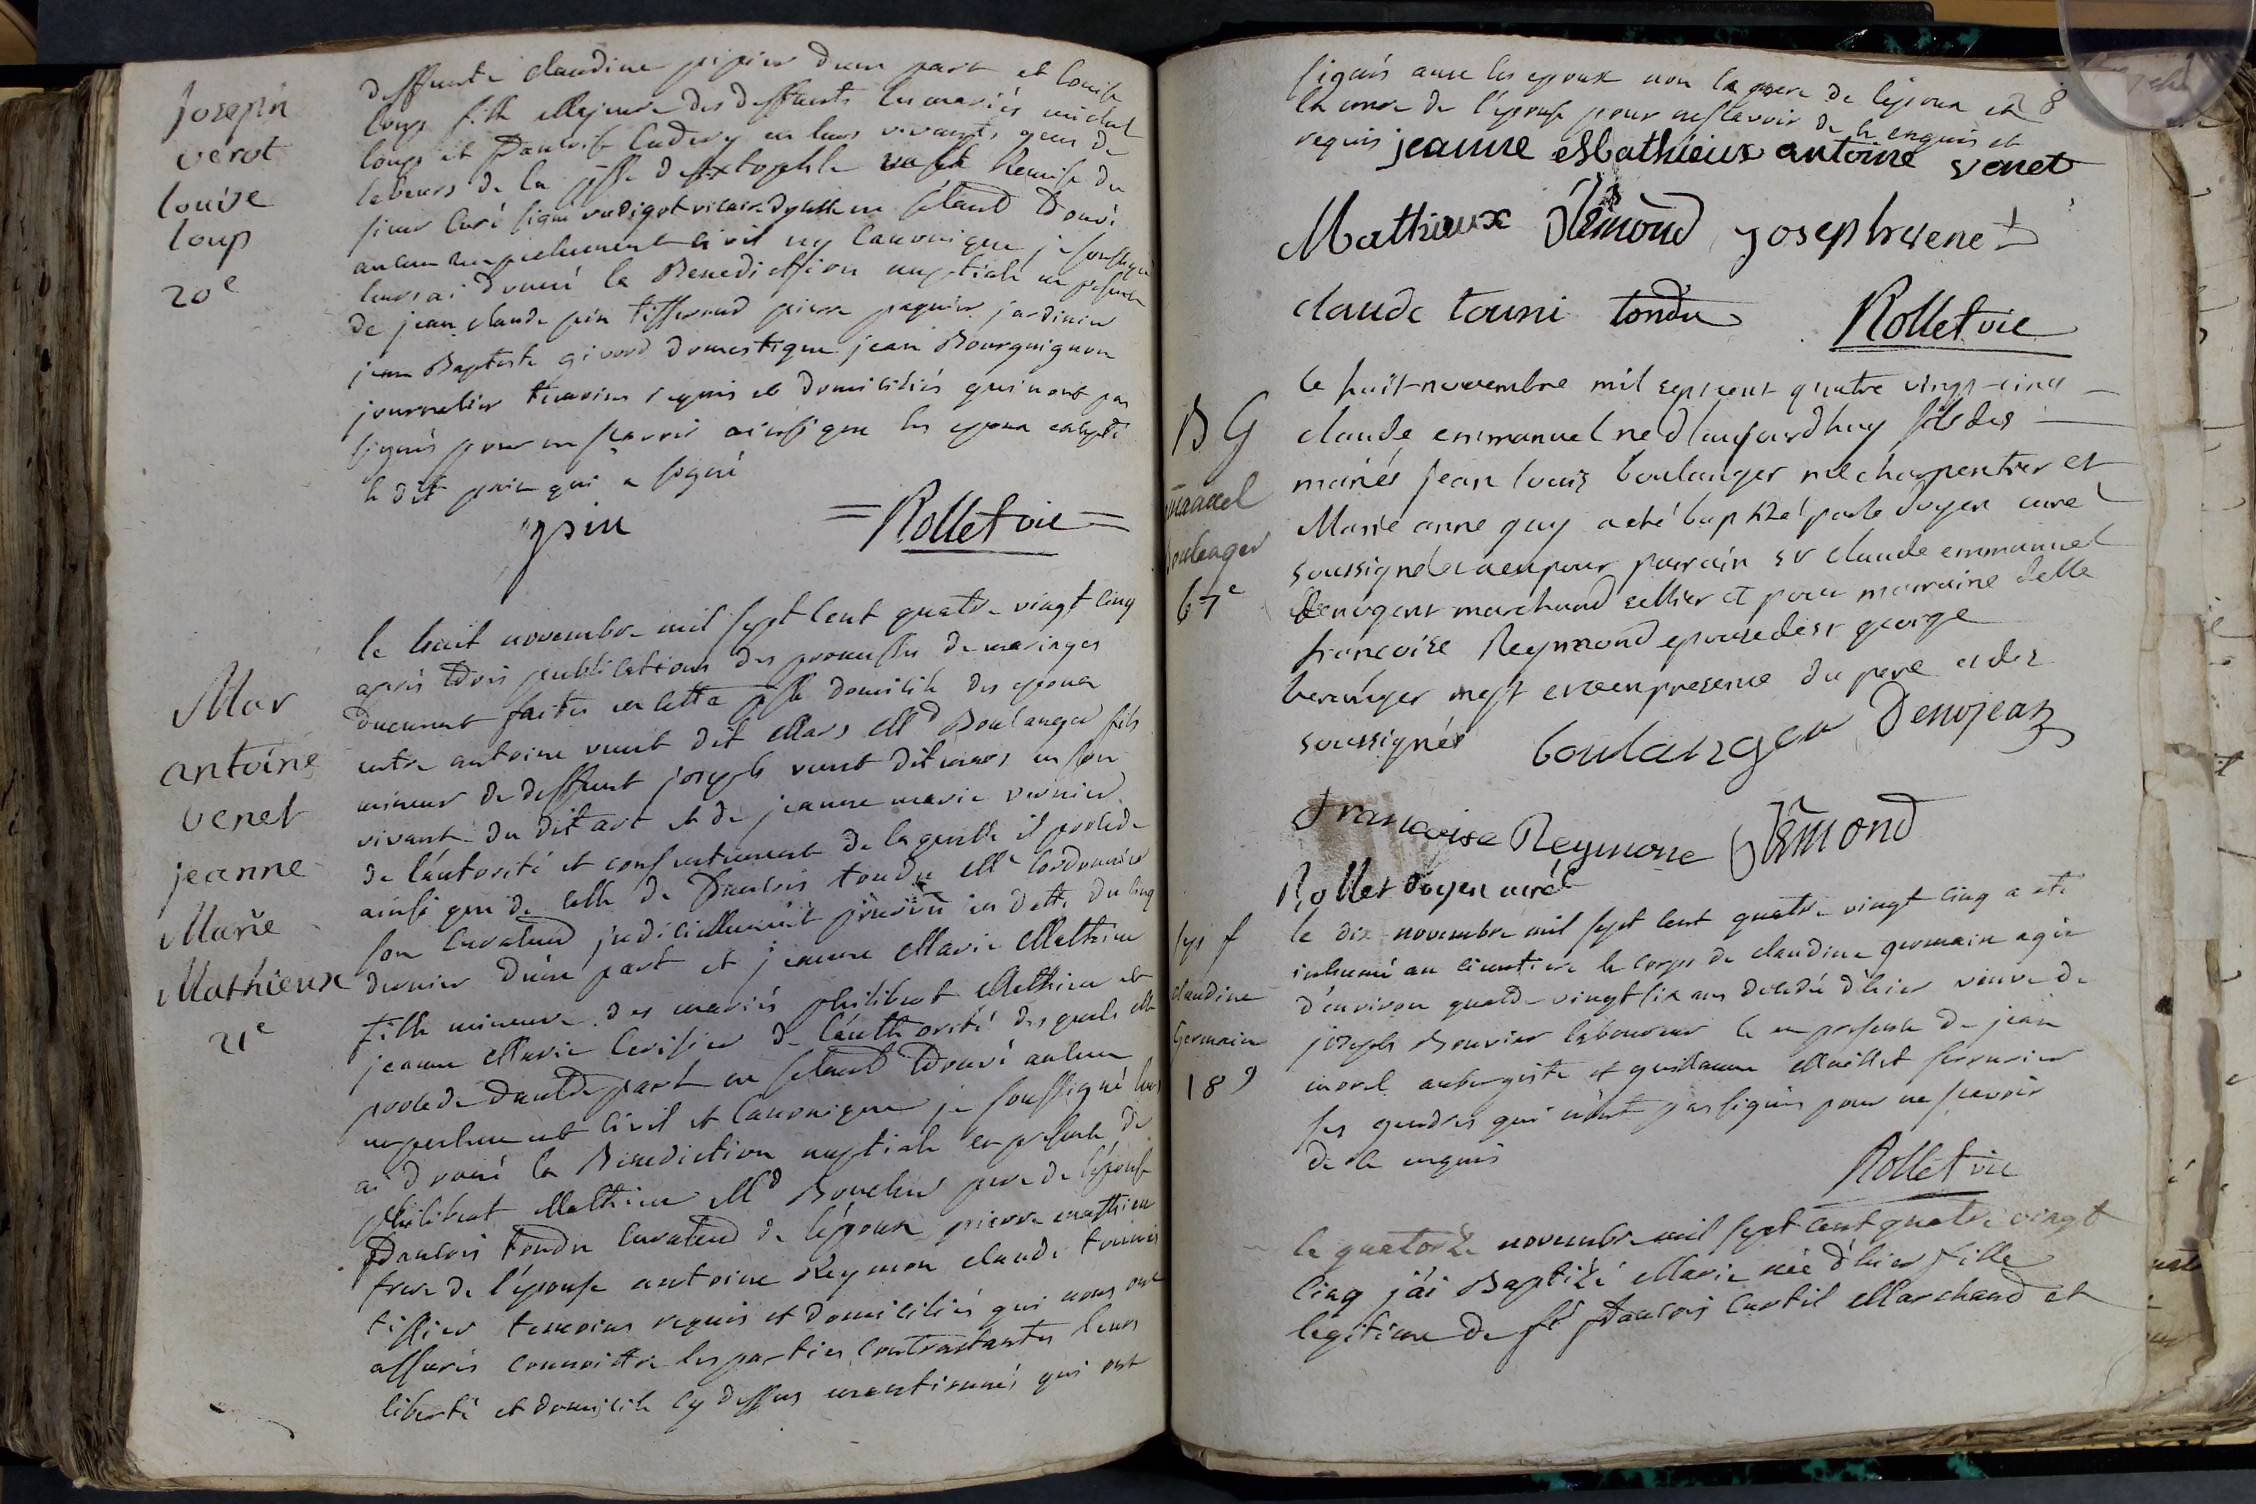 Joseph
verot
louise
loup
20e
deffunte claudine pipier dune part et louise
loup fille Majeure des deffunts les mariés michel
loup et francoise ludivy en leurs vivants gens de
labeurs de la psse de vu la Remise du
sieur curé signé vudigot vicaire sétant trouvé
aucun empechement civil ny canonique je soussigné
leurs ai donné la Benediction nuptiale en présence
de jean claude pin tisserand pierre paquier jardinier
jean Baptiste givord domestique jean Bourguignon
journalier temoins requis et domiciliés qui nont pas
signés pour ne scavoir ainsi que les epoux excepté
le dit pin qui a signé
pin
=Rollet vic=
Mar
antoine
venet
jeanne
Marie
Mathieux
21e
le huit novembre mil sept cent quatre vingt cinq
après trois publications des promesses de mariages
duement faites en cette psse domicile des epoux
entre antoine venet dit Mars Md Boulanger fils
mineur de deffunt joseph venet dit mars en son
vivant du dit art et de jeanne marie vernier
de l'autorité et consentement de laquelle il procede
ainsi que de celle de francois tondu Me Cordonnier
son curateur judiciellement en datte du cinq
dernier d'une part et jeanne Marie Mathieu
fille mineure des mariés philibert Mathieu et
jeanne Marie Cerisier de l'authorité des quels elle
procede dautre part ne sétant trouvé aucun
empechement civil et canonique je soussigné leurs
ai donné la Benediction nuptiale en présence de
philibert Mathieu Md Boucher pere de l'épouse
francois tondu curateur de l'époux pierre mathieu
frere de l'épouse antoine Reymon claude tounis
tissier temoins requis et domiciliés qui nous ont
assurés connoitre les parties contractantes leurs
liberté et domicile cy dessus mentionnés qui ont
signés avec les epoux non la mere de l'epoux et
la mere de l'épouse pour ne scavoir de ce enquis et
requis jeanne Mathieux antoine venet
Mathieux Rémond joseph venet
claude touni tondu Rollet vic
B G
manuel
boulanger
67e
le huit novembre mil sept cent quatre vingt-cinq
claude emmanuel né d'aujourdhuy fils des
mariés jean louis boulanger me charpentier et
Marie anne guy a été baptizé par le doyen curé
soussigné et a eu pour parrain sr claude emmanuel
denogent marchand sellier et pour marraine delle
francoise Reymond epouse de sr george
beranger en presence du pere et des
soussignés boulanger Denojean
francoise Reymone Rémond
Rollet doyen curé
sep f
claudine
Germain
189
le dix novembre mil sept cent quatre vingt cinq a eté
inhumé au cimetiere le corps de claudine germain agée
d'environ quatre vingt six ans decedé d'hier veuve de
joseph Bouvier laboureur ce en présence de jean
morel aubergiste et guillaume Maillet serrurier
ses gendres qui n'ont pas signés pour ne scavoir
de ce enquis
Rollet vic
le quatorze novembre mil sept cent quatre vingt
cinq j'ai Baptizé Marie née d'hier fille
legitime de sr francois curtil Marchand et